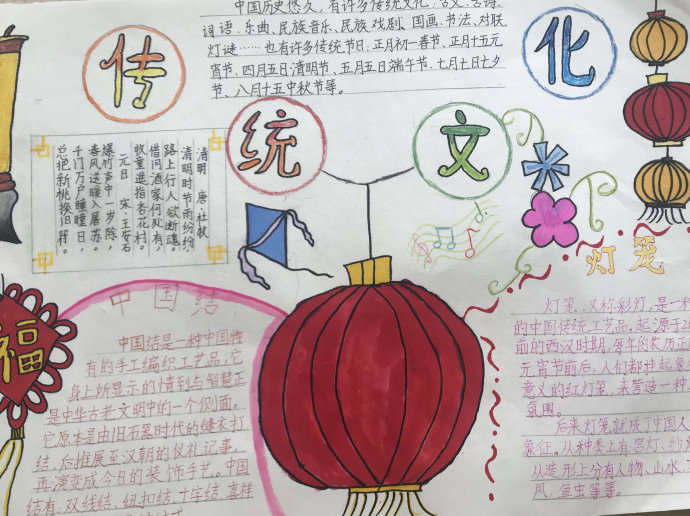 中国历史悠久,有许多传统文化,古文、古诗、
词语、乐曲、民族音乐、民族戏剧、国画、书法、对联、
灯谜……也有许多传统节日,正月初一春节、正月十五元
宵节、四月五日清明节、五月五日端午节、七月七日七夕
节、八月十五中秋节等。
传
统
文
化
清明 唐·杜牧
清明时节雨纷纷,
路上行人欲断魂。
借问酒家何处有,
牧童遥指杏花村。
元日 宋·王安石
爆竹声中一岁除,
春风送暖入屠苏。
千门万户瞳瞳日,
总把新桃换旧符。
中国结
中国结是一种中国传
有的手工编织工艺品,它
身上所显示的情到与智慧正
是中华古老文明中的一个侧面。
它原本是由旧石器时代的缝衣打
结,后推展至汉朝的仪礼记事,
再演变成今日的装饰手艺。中国
结有:双线结、纽扣结、十字结、吉祥
福
灯笼
灯笼,又称彩灯,是一种
的中国传统工艺品,起源于2
前的西汉时期,每年的农历正月
元宵节前后,人们都挂起象
意义的红灯笼,来营造一种
氛围。
后来灯笼就成了中国人
象征。从种类上有宫灯、纱
从造形上分有人物、山水、
凤、鱼虫等等。